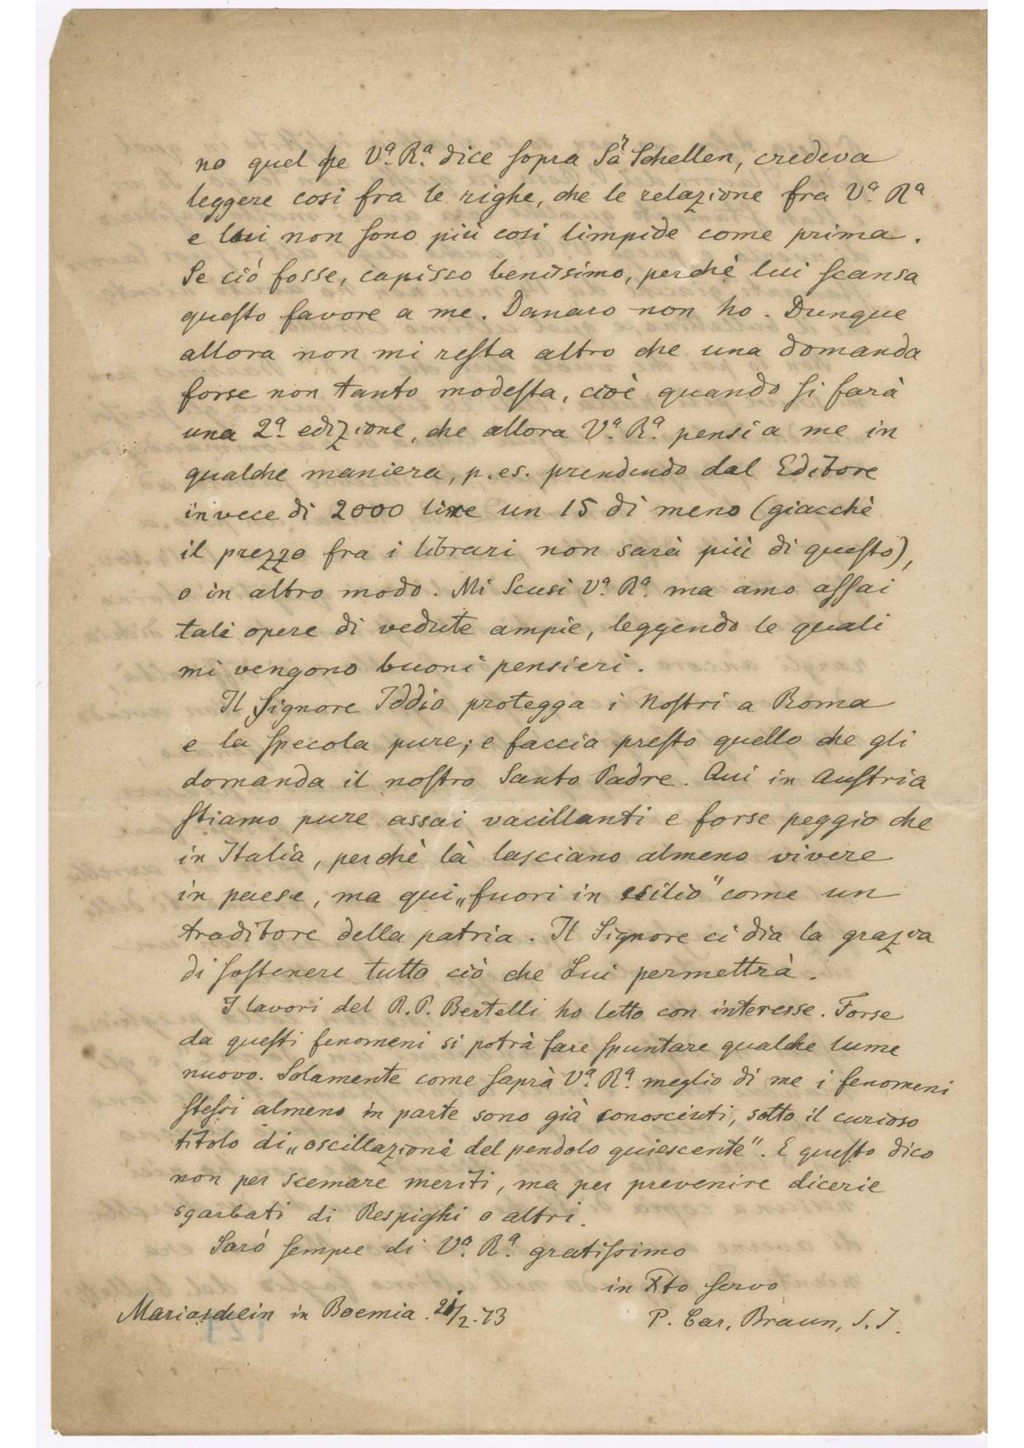 no quel che Vª Rª dice sopra Sr Schellen, credeva
leggere cosi fra le righe, che le relazione fra Vª Rª
e lui non sono più cosi limpide come prima.
Se ciò fosse, capisco benissimo, perchè lui scansa
questo favore a me. Danaro non ho. Dunque
allora non mi resta altro che una domanda
forse non tanto modesta, cioè quando si farà
una 2ª edizione, che allora Vª Rª pensi a me in
qualche maniera, p. es. prendendo dal Editore
invece di 2000 lire un 15 di meno (giacchè
il prezzo fra i librari non sarà più di questo),
o in altro modo. Mi Scusi Vª Rª ma amo assai
tali opere di vedute ampie, leggendo le quali
mi vengono buoni pensieri.
Il Signore Iddio protegga i Nostri a Roma
e la specola pure; e faccia presto quello che gli
domanda il nostro Santo Padre. Qui in Austria
stiamo pure assai vacillanti e forse peggio che
in Italia, perchè là lasciano almeno vivere
in paese, ma qui „fuori in esilio" come un
traditore della patria. Il Signore ci dia la grazia
di sostenere tutto ciò che Lui permettrà.
I lavori del R. P. Bertelli ho letto con interesse. Forse
da questi fenomeni si potrà fare spuntare qualche lume
nuovo. Solamente come saprà Vª Rª meglio di me i fenomeni
stessi almeno in parte sono già conosciuti, sotto il curioso
titolo di „oscillazioni del pendolo quiescente". E questo dico
non per scemare meriti, ma per prevenire dicerie
sgarbati di Respighi o altri.
Sarò sempre di Vª Rª gratissimo
in Xto servo
Mariaschein in Boemia. /2. 73 P. Car. Braun, S. J.